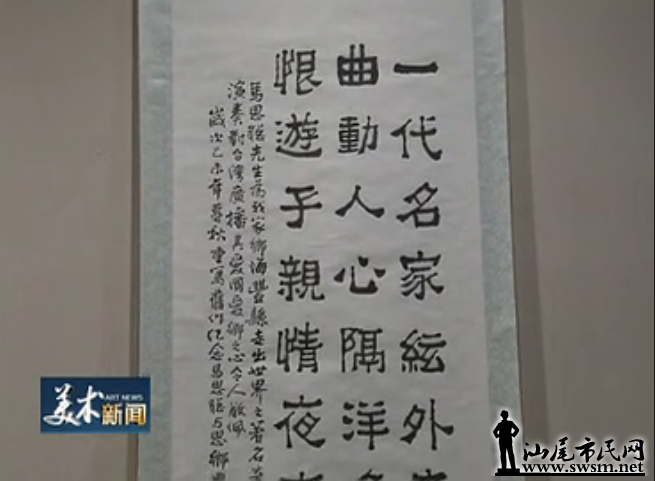 一代名家紜外
曲動人心隔洋
恨遊子親情夜
馬思聰先生為我家鄉海豐縣走出世界之著名
演奏對台灣廣播其愛國愛鄉之心令人敬佩
歲次乙未年暮秋重寫舊作紀念馬思聰与思鄉
美术新闻
ART NEWS
汕尾市民网
www.swsm.net